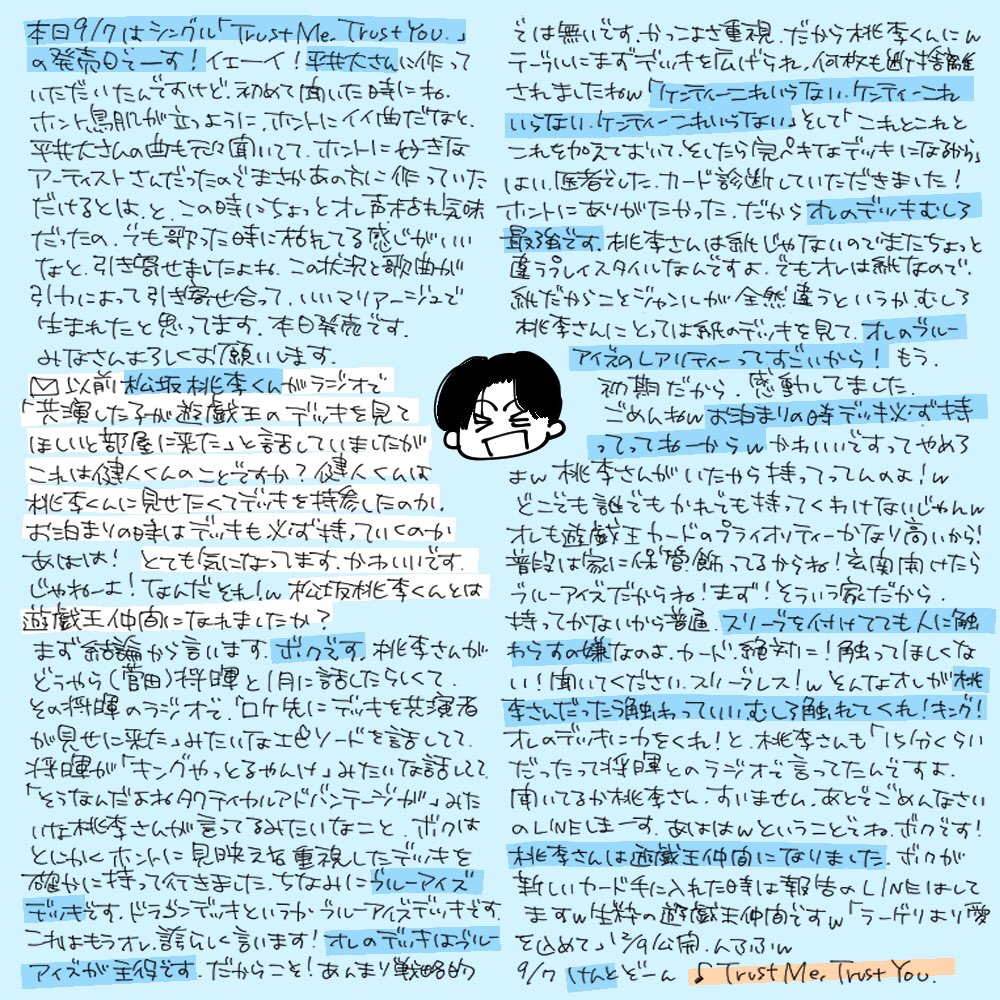 本日9/7はシングル「Trust Me, Trust You.」
の発売日でーす！イェーイ！平井大さんに作って
いただいたんですけど、初めて聞いた時にね、
ホント鳥肌が立つように、ホントにイイ曲だなと、
平井大さんの曲も元々聞いてて、ホントに好きな
アーティストさんだったのでまさかあの方に作っていた
だけるとは、と、この時にちょっとオレ声枯れ気味
だったの、でも歌った時に枯れてる感じがいい
なと、引き寄せましたよね、この状況と歌曲が
引力によって引き寄せ合って、いいマリアージュで
生まれたと思ってます、本日発売です、
みなさんよろしくお願いします、
以前松坂桃李くんがラジオで
「共演した子が遊戯王のデッキを見て
ほしいと部屋に来た」と話していましたが
これは健人くんのことですか？健人くんは
桃李くんに見せたくてデッキを持参したのか、
お泊まりの時はデッキも必ず持っていくのか
あはは！とても気になってます、かわいいです、
じゃねーよ！なんだそれ！w 松坂桃李くんとは
遊戯王仲間になれましたか？
まず結論から言います、ボクです、桃李さんが
どうやら(菅田)将暉と1月に話したらしくて、
その将暉のラジオで、「ロケ先にデッキを共演者
が見せに来た」みたいなエピソードを話してて、
将暉が「キングやっとるやんけ」みたいな話してて、
「そうなんだよねタクティカルアドバンテージが」みた
いな桃李さんが言ってるみたいなこと、ボクは
とにかくホントに見映えを重視したデッキを
確かに持って行きました、ちなみにブルーアイズ
デッキです、ドラゴンデッキというかブルーアイズデッキです、
これはもうオレ、誇らしく言います！オレのデッキはブルー
アイズが主役です、だからこそ！あんまり戦略的
では無いです、かっこよさ重視、だから桃李くんにw
テーブルにまずデッキを広げられ、何枚も断捨離
されましたねw「ケンティーこれいらない、ケンティーこれ
いらない、ケンティーこれいらない」そして「これとこれと
これを加えておいて、そしたら完ペキなデッキになるから」
はい、医者でした、カード診断していただきました！
ホントにありがたかった、だからオレのデッキむしろ
最強です、桃李さんは紙じゃないのでまたちょっと
違うプレイスタイルなんですよ、でもオレは紙なので、
紙だからことジャンルが全然違うというか、むしろ
桃李さんにとっては紙のデッキを見て、オレのブルー
アイズのレアリティーってすごいから！もう、
初期だから、感動してました
ごめんねw お泊まりの時デッキ必ず持
ってってねーからw かわいいですってやめろ
よw 桃李さんがいたから持ってってんのよ！w
どこでも誰でもかれでも持ってくわけないじゃんw
オレも遊戯王カードのプライオリティーかなり高いから！
普段は家に保管、飾ってるからね！玄関開けたら
ブルーアイズだからね！まず！そういう家だから、
持ってかないから普通、スリーブを付けてても人に触
わらすの嫌なのよ、カード、絶対に！触ってほしくな
い！聞いてください、スリーブレス！w そんなオレが桃
李さんだったら触わっていいむしろ触れてくれ！キング！
オレのデッキに力をくれ！と、桃李さんも「15分くらい
だったって将暉とのラジオで言ってたんですよ、
聞いてるか桃李さん、すいません、あとでごめんなさい
のLINEしまーす、あははwということでね、ボクです！
桃李さんは遊戯王仲間になりました、ボクが
新しいカード手に入れた時は報告のLINEはして
ますw生粋の遊戯王仲間ですw「ラーゲリより愛
を込めて」12/9公開、んふふw
9/7 けんとぞーん ♪Trust Me, Trust You.